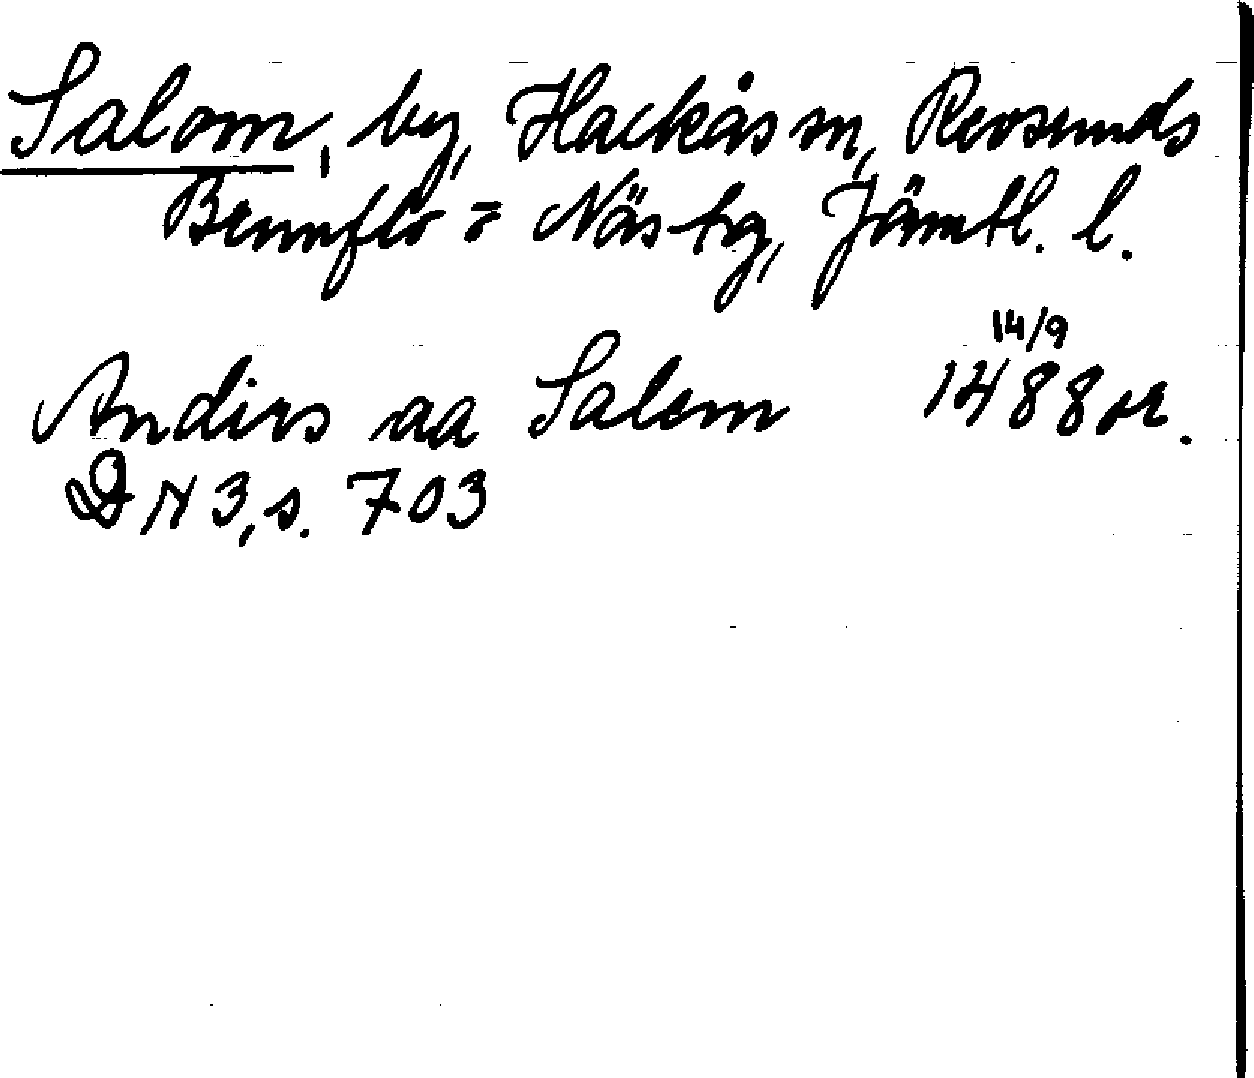 Salom, by, Hackås sn, Revsunds
Brunflo = Näs tg, Jämtl. l.
14/9
Anders aa Salem 1488 or.
DN 3, s. 703